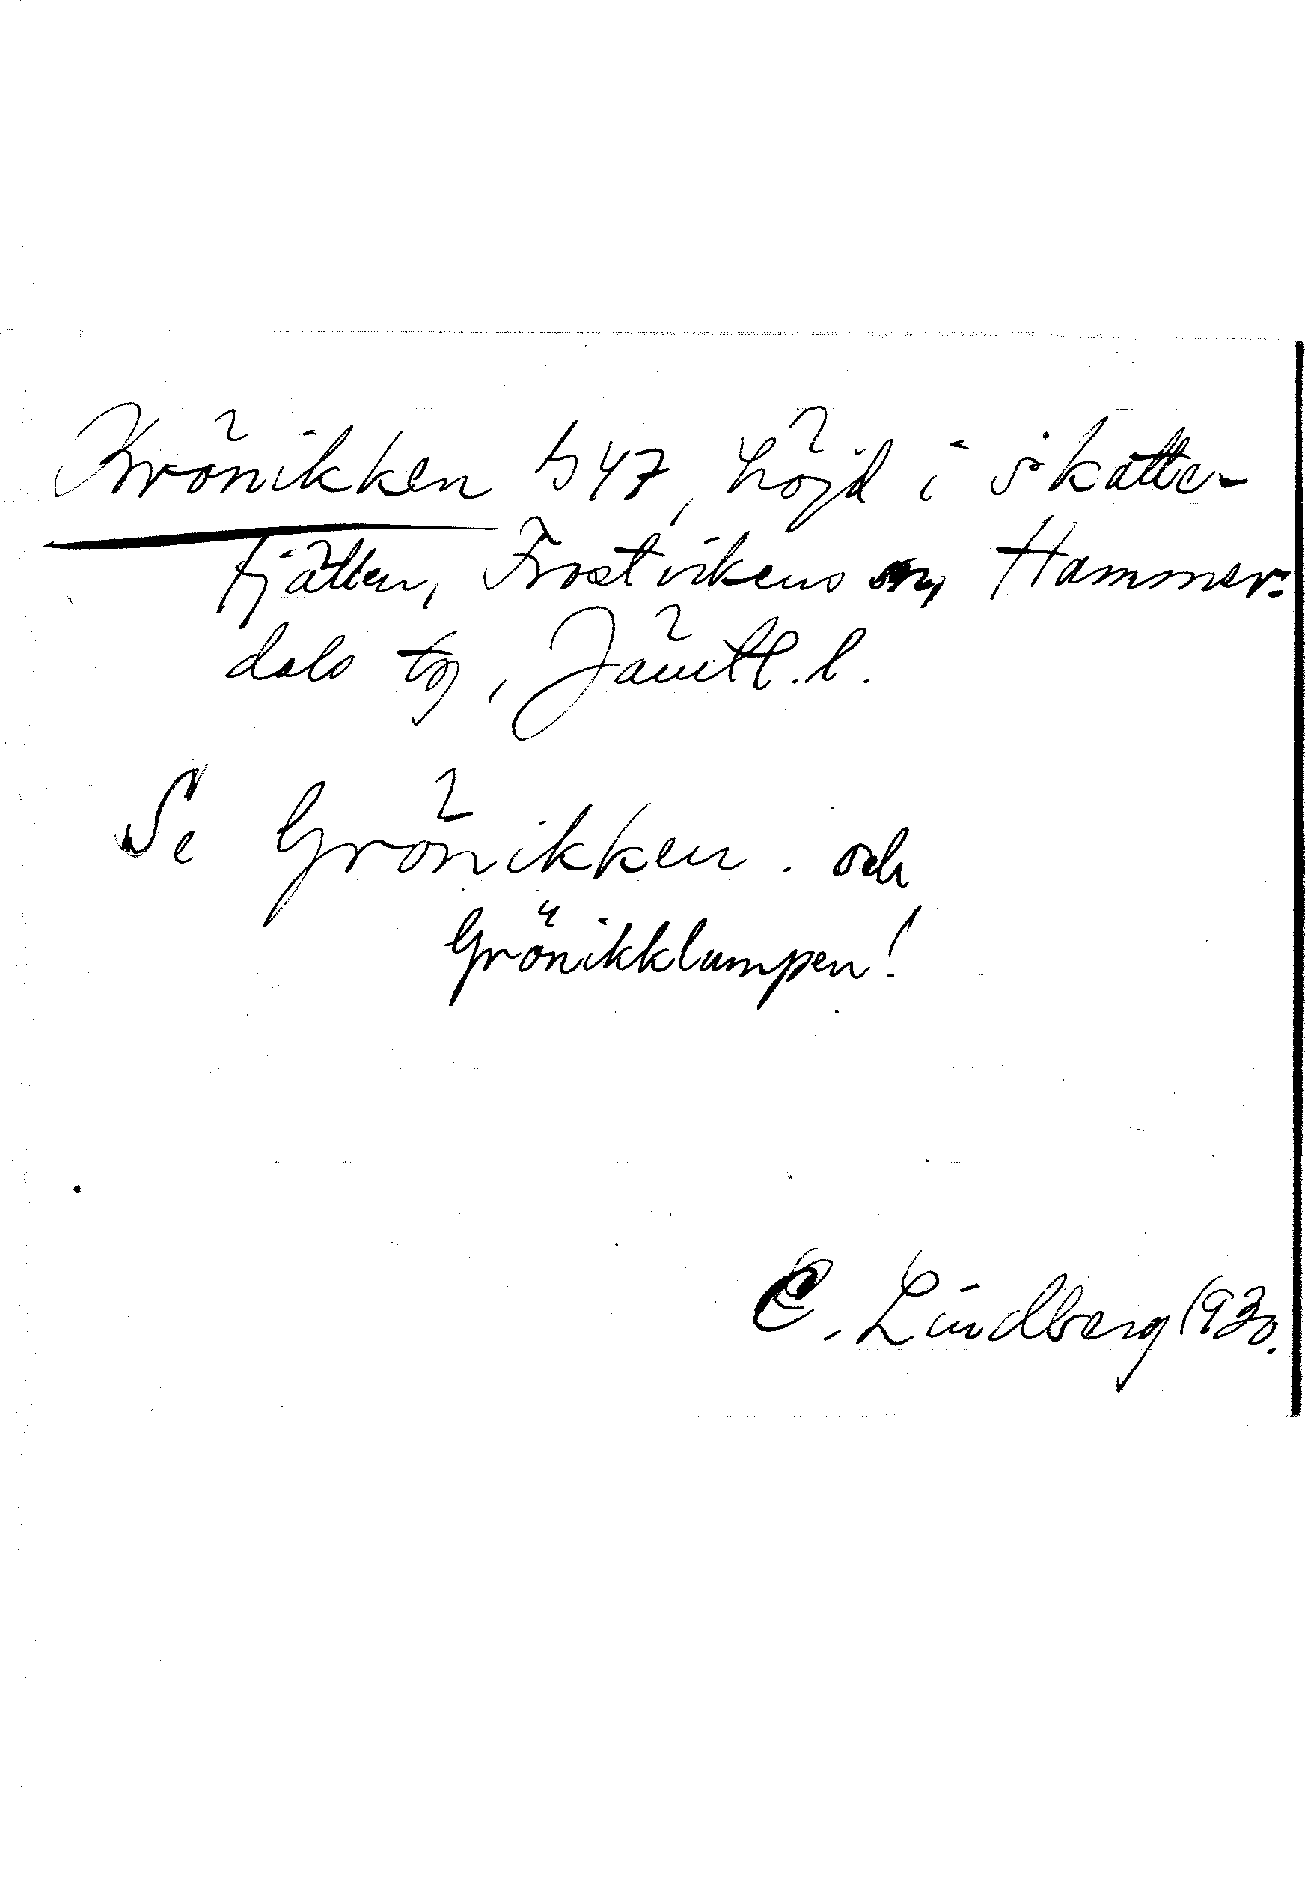 Krönikken b 47, höjd i Skatte-
fjällen, Frostvikens sn, Hammer-
dals tg, Jämtl. l.
Se Grönikken. och
Grönikklumpen!
E. Lindberg 1930.